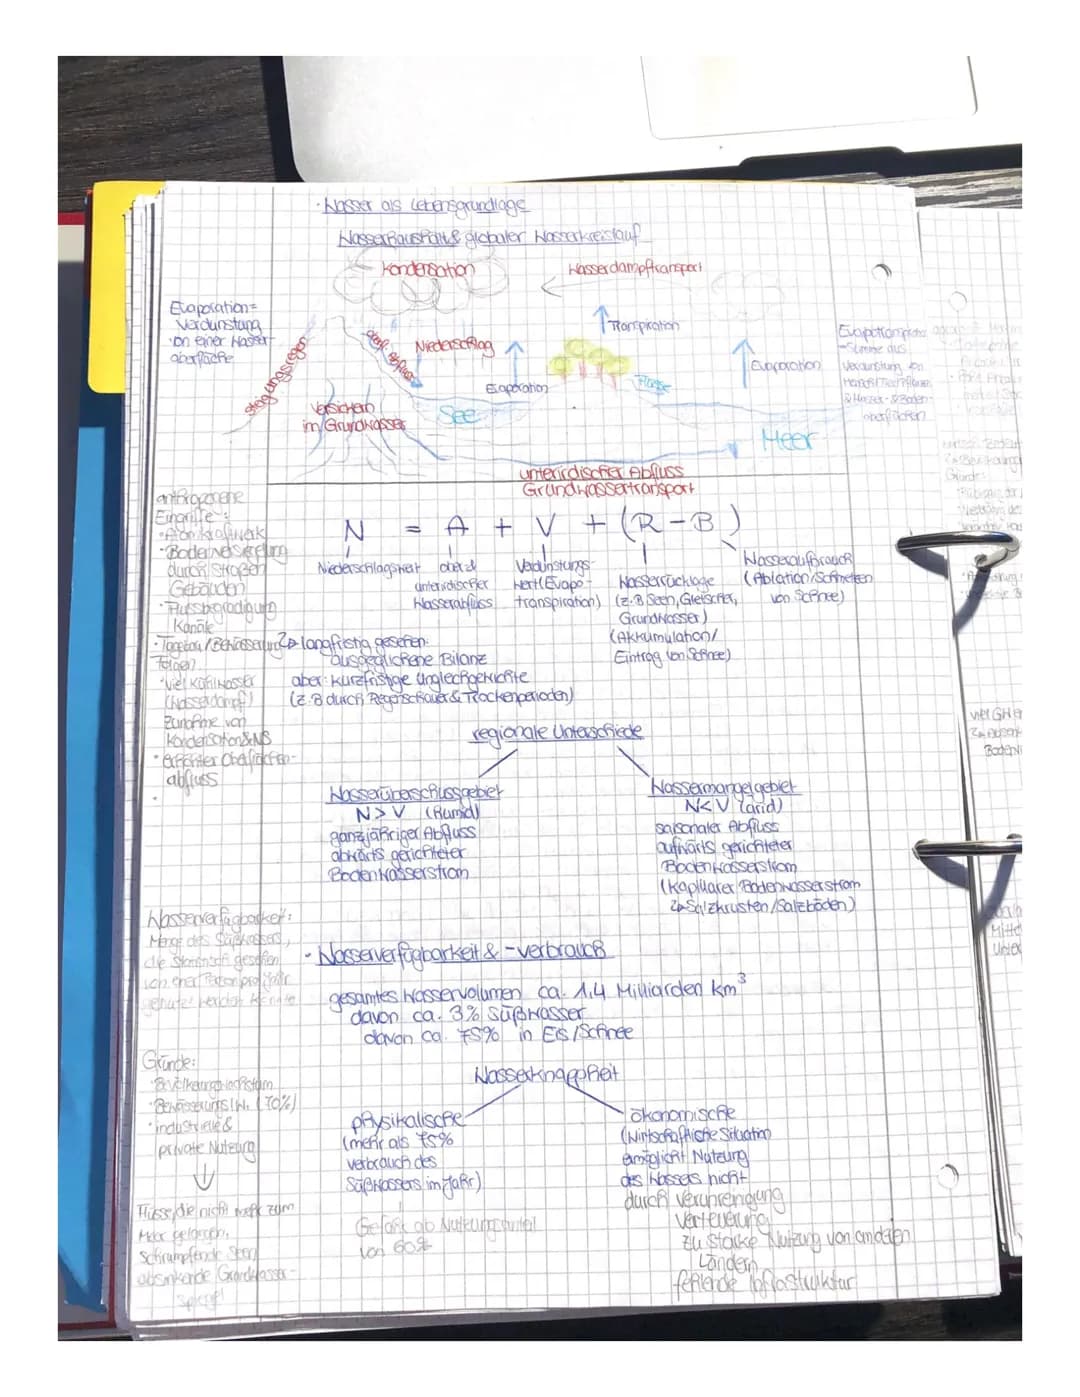 · Wasser als Lebensgrundlage
Wasserhaushalt & globaler Wasserkreislauf
Kondensation
Wasserdampftransport
Evaporation=
Verdunstung
von einer Wasser-
oberfläche
Steigungsregen
oberf. Abfluss
Niederschlag
Transpiration
Evaporation
Evaporation
Versickern
im Grundwasser
See
Flüsse
Meer
Summe aus
Verdunstung von
& Wasser- & Boden-
oberflächen
unterirdischer Abfluss
Grundwassertransport
anthropogene
Eingriffe:
· Atomkraftwerk
· Bodenversiegelung
durch Straßen
Gebäuden
· Flussbegradigung
Kanäle
· Tagebau / Bewässerung
Folgen:
· viel Kühlwasser
(Wasserdampf)
Zunahme von
Kondensation & NS
· erhöhter Oberflächen-
abfluss
N = A + V + (R-B)
Niederschlagswert
ober- &
unterirdischer
Wasserabfluss
Verdunstungs-
wert (Evapo-
transpiration)
Wasserrücklage
(z.B Seen, Gletscher,
Grundwasser)
(Akkumulation/
Eintrag von Schnee)
Wasseraufbrauch
(Ablation/Schmelzen
von Schnee)
↳ langfristig gesehen:
ausgeglichene Bilanz
aber: kurzfristige Ungleichgewichte
(z.B durch Regenschauer & Trockenperioden)
regionale Unterschiede
Wasserüberschussgebiet
N > V (humid)
ganzjähriger Abfluss
abwärts gerichteter
Bodenwasserstrom
Wassermangelgebiet
N < V (arid)
saisonaler Abfluss
aufwärts gerichteter
Bodenwasserstrom
(kapillarer Bodenwasserstrom
↳ Salzkrusten/Salzböden)
Wasserverfügbarkeit:
Menge des Süßwassers,
die statistisch gesehen
von einer Person pro Jahr
genutzt werden könnte
· Wasserverfügbarkeit & -verbrauch
gesamtes Wasservolumen ca. 1,4 Milliarden km³
davon ca. 3% Süßwasser
davon ca. 75% in Eis/Schnee
Wasserknappheit
Gründe:
· Bevölkerungswachstum
· Bewässerungslw. (70%)
· industrielle &
private Nutzung
↓
Flüsse, die nicht mehr zum
Meer gelangen,
schrumpfende Seen,
absinkende Grundwasser-
spiegel
physikalische
(mehr als 75%
verbrauch des
Süßwassers im Jahr)
Gefahr ab Nutzungsanteil
von 60%
ökonomische
(wirtschaftliche Situation
ermöglicht Nutzung
des Wassers nicht
durch Verunreinigung
Verteuerung
zu starke Nutzung von anderen
Ländern
fehlende Infrastruktur